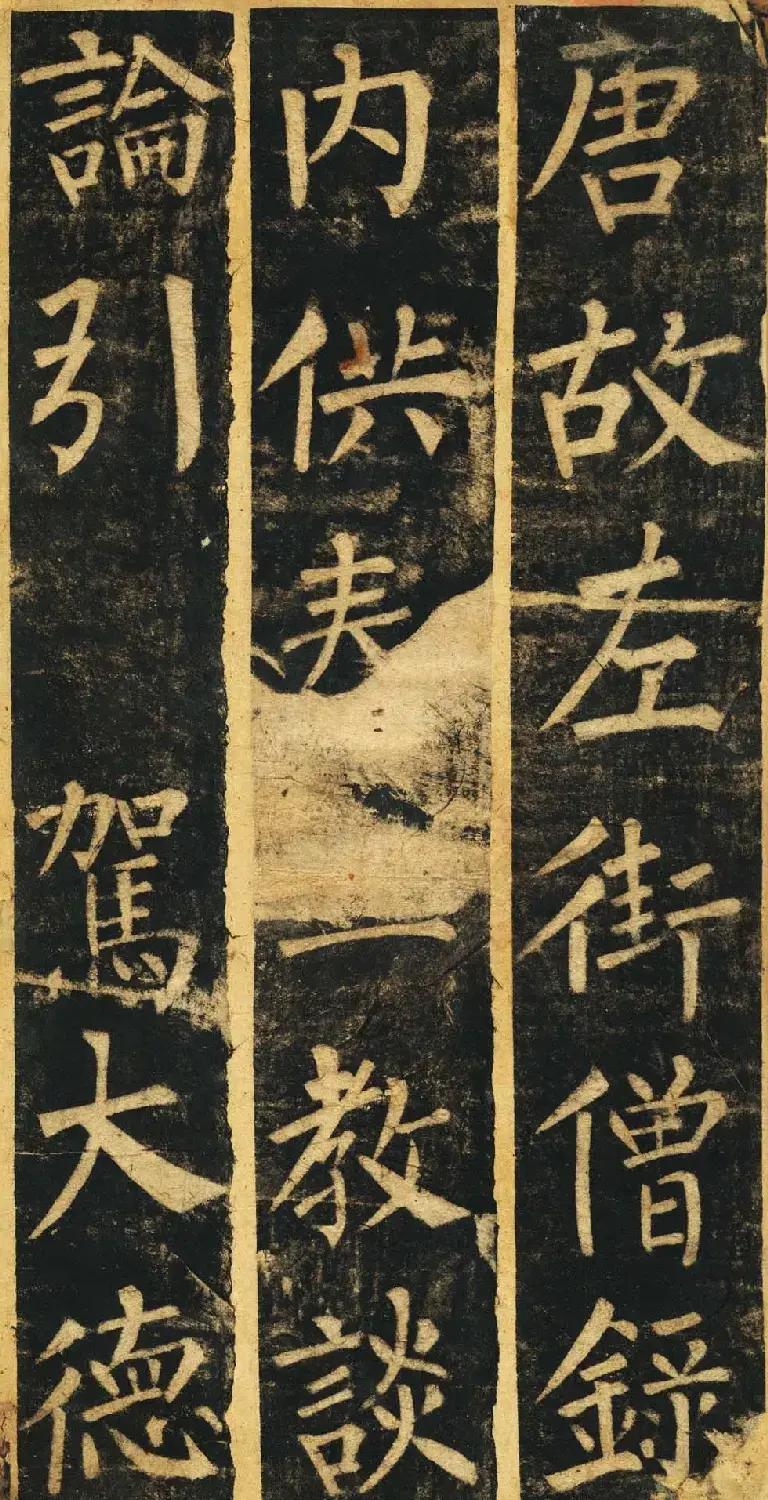 唐故左街僧錄
内供一教談
論引駕大德